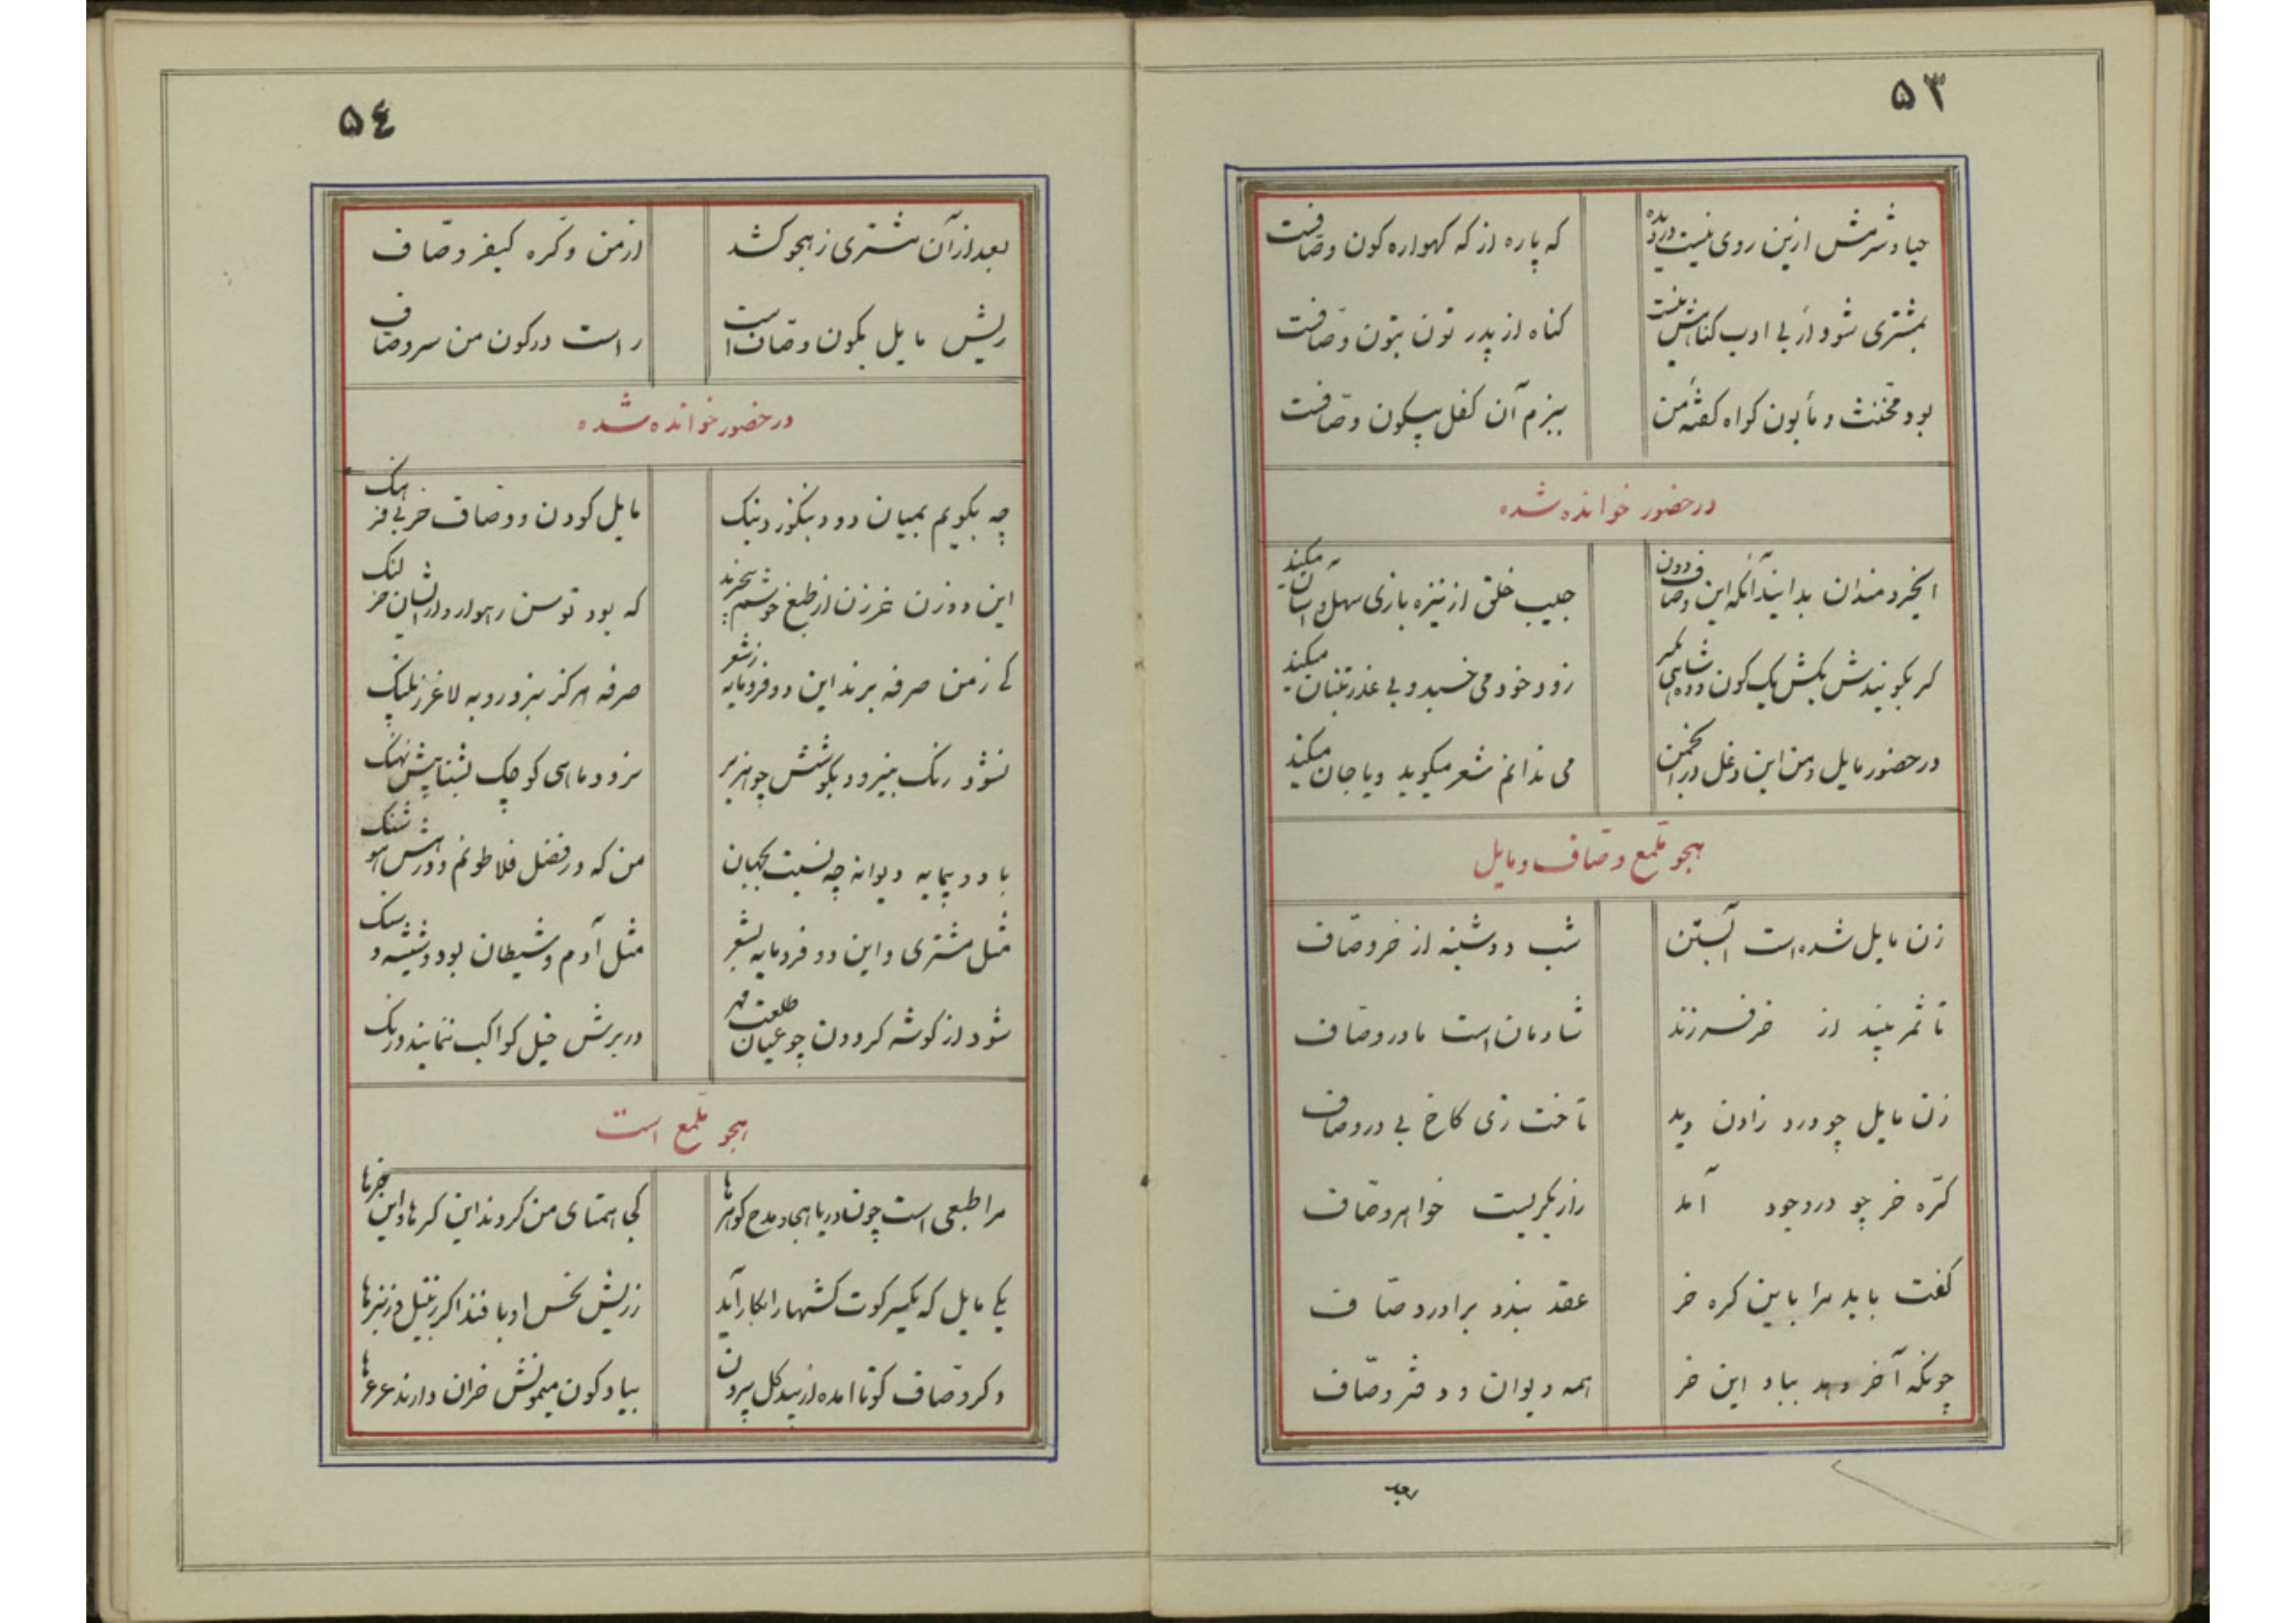 ۵۳
حیا و شرمش ازین روی نیست در دیده که پاره از که کهواره کون وصافست
بمشتری شود ار بی ادب کناهش نیست کناه از پدر تون بتون وصافست
بود مخنث و مأبون کواه کفتهٔ من ببزم آن کفل پیکون وصافست
در حضور خوانده شده
ایخردمندان بدانید آنکه این وصاف دون جیب خلق از نیزه بازی سهل و آسان میکند
کر بکویندش بکش یک کون و ده شاهی بگیر زود خود می خسبد و بی عذر تنبان میکند
در حضور مایل و من این دغل در انجمن می ندانم شعر میکوید و یا جان میکند
هجو ملمع وصاف و مایل
زن مایل شده است آبستن شب دوشینه از خر وصاف
تا ثمر بیند از خر فرزند شادمان است مادر وصاف
زن مایل چو درد زادن دید تاخت زی کاخ بی در وصاف
کره خر چو در وجود آمد زار بگریست خواهر وصاف
کفت باید مرا باین کره خر عقد بندد برادر وصاف
چونکه آخر دهد بباد این خر همه دیوان و دفتر وصاف
بعد
۵٤
بعد از آن مشتری ز هجو کشد از من و کره کیفر وصاف
ریش مایل بکون وصاف است راست در کون من سر وصاف
در حضور خوانده شده
چه بکویم بمیان دو دبنکوز دبنک مایل کودن و وصاف خر بی فرهنک
این دو زن غرزن از طبع خوشم بیخبرند که بود توسن رهوار و از ایشان خر لنک
کی ز من صرفه برند این دو فرومایه ز شعر صرفه هرکز نبرد روبه لاغر ز پلنک
نشود رنک بنیرو و بکوشش چو هژبر نرود ماهی کوچک بشنا پیش نهنک
باد دیمایه دیوانه چه نسبت بجهان من که در فضل فلاطونم و در هش هوشنک
مثل مشتری و این دو فرومایه بشعر مثل آدم و شیطان بود و شیشه و سنک
شود از کوشه کردون چو عیان طلعت مهر در برش خیل کواکب ننمایند درنک
هجو ملمع است
مرا طبعی است چونان دریا هجا و مدح کوهرها کجا همتای من کردند این کرها و این خرها
یکی مایل که یکسر کوت کشتها را بکار آید ز ریش نحس او بافند اکر زنبیل و زنبرها
دکر وصاف کونا امده از بید کل بیرون بیاد کون میمونش خران دارند عرعرها